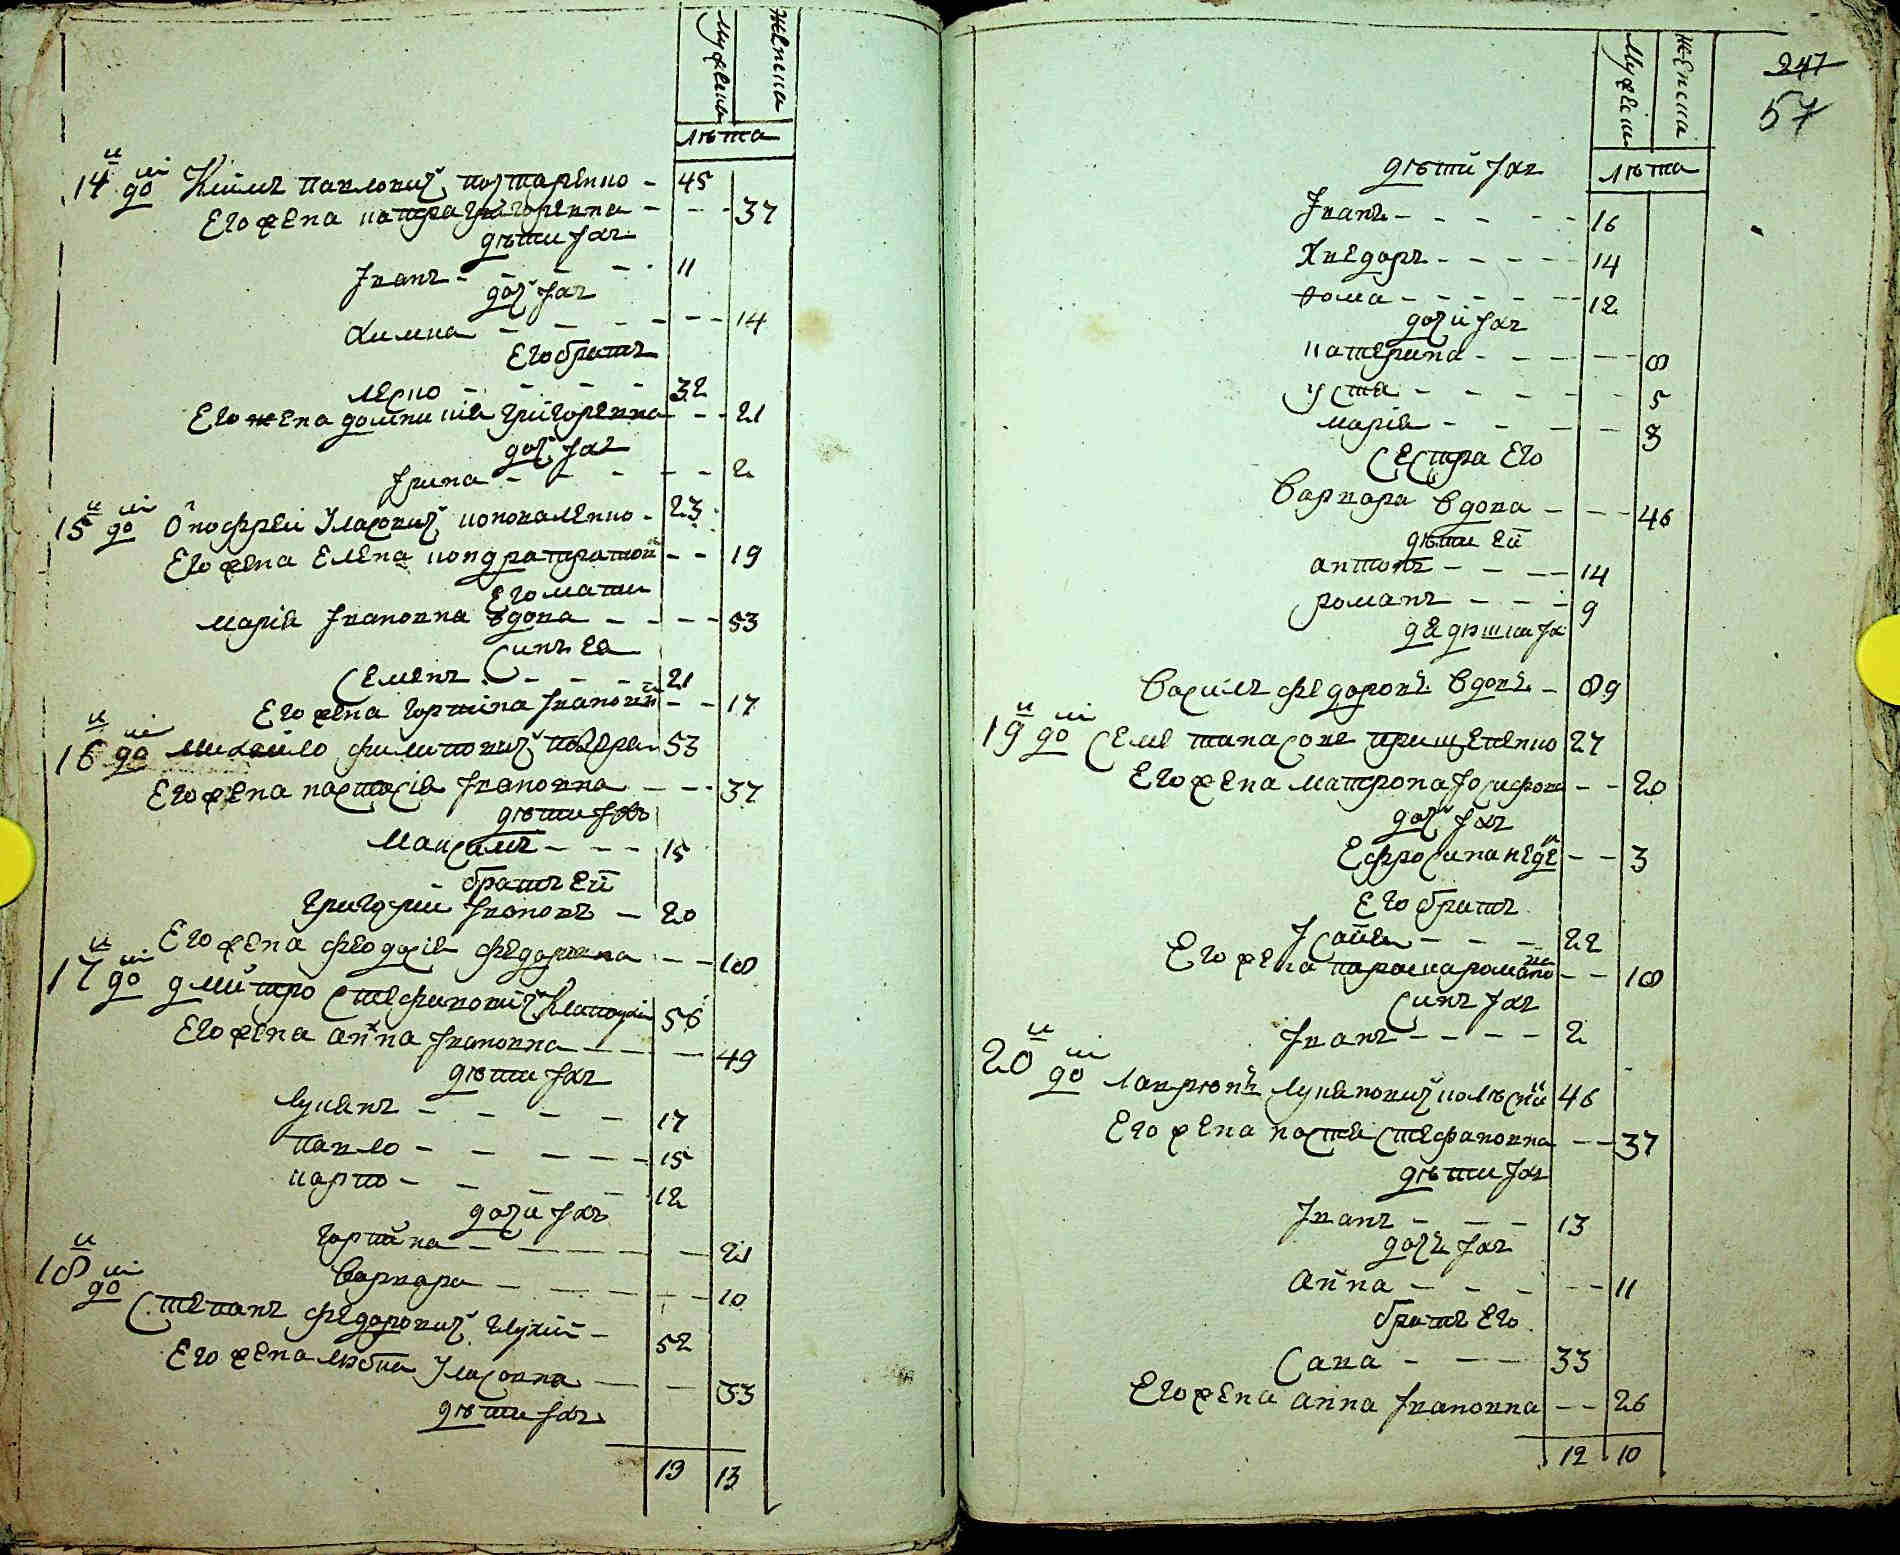 мужеска женска
лѣта
14й дőш Кїимъ павловичъ 45
Его жена григоревна - - - 37
дѣти їхъ
Їванъ - - - - 11
доч їхъ
Химка - - - - - - 14
Его братъ
леско - - - - 32
Его жена домникия григоревна - - 21
доч їхъ
Їрина - - - - - 2
15й дош Оноффреи Уласовичъ коноваленко - 23
Его жена Елена - - 19
Его мати
мария Ївановна вдова - - - - 53
Синъ Ея
Семенъ - - - - 21
Его жена горпина Ївановн - - 17
16й дош михайло филиповичъ 53
Его жена настасїя Ївановна - - - 37
дѣти їхъ
Максимъ - - - 15
братъ Ей
григорїй Ївановъ - 20
Его жена феодосїя федоровна - - - 18
17й дош дмитро Стефановичъ 56
Его жена анна Ївановна - - - 49
дѣти їхъ
лукянъ - - - - 17
павло - - - - - 15
карпо - - - - 12
дочи їхъ
горпина - - - - - - 21
Варвара - - - - - - 10
18й дош
Степанъ федоровичъ глухий - 52
Его жена любка Уласовна - - 33
дѣти їхъ
13 13
мужеска женска
247
57
лѣта
дѣти їхъ
Їванъ - - - - - 16
Хведоръ - - - - 14
фома - - - - - 12
дочи їхъ
катерина - - - - - 8
устя - - - - - - 5
марія - - - - 3
Сестра Его
Варвара Вдова - - - 46
дѣти Ей
антонъ - - - - 14
романъ - - - 9
їх
Василь федоровъ Вдовъ - 89
19й дош 27
Его жена матрона Їосифовн - - 20
доч їхъ
Ефросина - - 3
Его братъ
Їсайя - - - 22
Его жена параска - - 18
Синъ їхъ
Їванъ - - - - 2
20й дош лаврюнъ лукяновичъ 46
Его жена настя Стефановна - - 37
дѣти їхъ
Їванъ - - - 13
дочъ їхъ
анна - - - - - - 11
братъ Его
Сава - - - 33
Его жена анна Ївановна - - 26
12 10